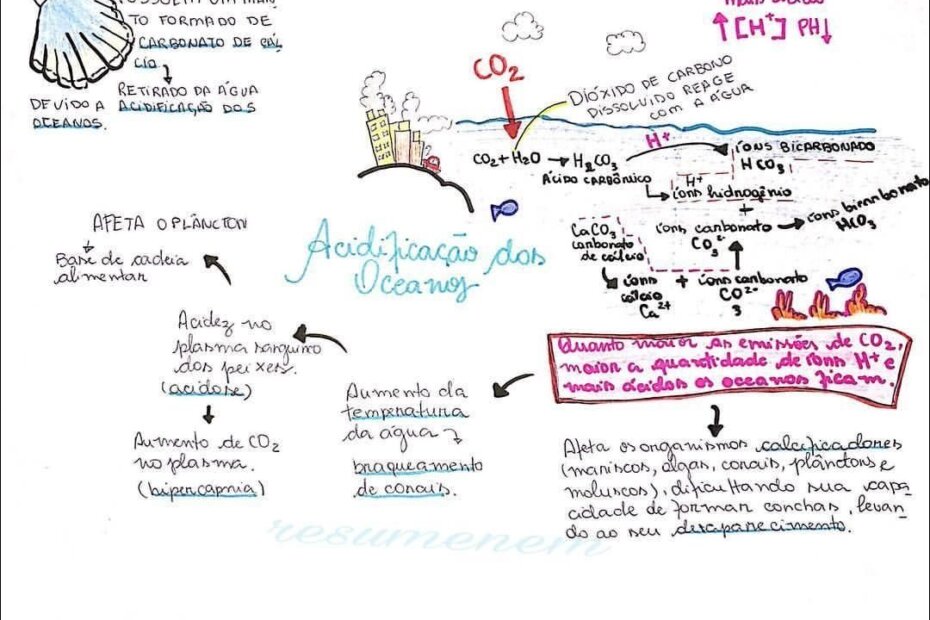 TO FORMADO DE
CARBONATO DE CÁL
CIO
RETIRADO DA ÁGUA
DEVIDO A ACIDIFICAÇÃO DOS
OCEANOS.
↑[H⁺] PH↓
CO₂
DIÓXIDO DE CARBONO
DISSOLVIDO REAGE
COM A ÁGUA
CO₂ + H₂O → H₂CO₃
ÁCIDO CARBÔNICO
H⁺
íONS BICARBONADO
HCO₃
H⁺
íons hidrogênio
+
íons carbonato
CO₃²⁻
íons bicarbonato
HCO₃
CaCO₃
carbonato
de cálcio
íons
cálcio
Ca²⁺
+ íons carbonato
CO²⁻
3
Acidificação dos
Oceanos
AFETA O PLÂNCTON
Base de cadeia
alimentar
Acidez no
plasma sanguíno
dos peixes.
(acidose)
Aumento de CO₂
no plasma.
(hipercapnia)
Aumento da
temperatura
da água
braqueamento
de corais.
Quanto maior as emissões de CO₂,
maior a quantidade de íons H⁺ e
mais ácidos os oceanos ficam.
Afeta os organismos calcificadores
(mariscos, algas, corais, plânctons e
moluscos), dificultando sua capa
cidade de formar conchas, levan
do ao seu desaparecimento.
resumenem